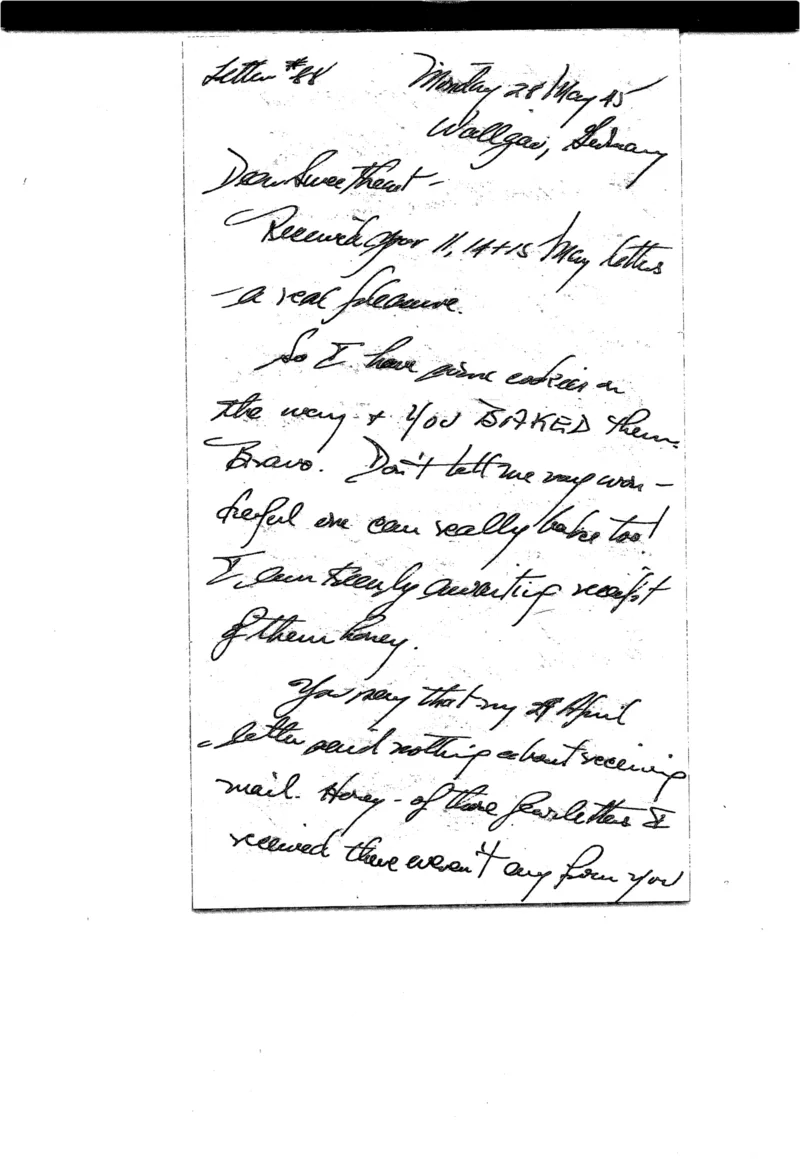 Letter #88 Monday 28 May 45
Wallgau, Germany
Dear Sweetheart -
Received your 11, 14 + 15 May letters
- a real pleasure.
So I have some cookies on
the way + YOU BAKED them.
Bravo. Don't tell me my won-
derful one can really bake too!
I am keenly awaiting receipt
of them honey.
You say that my 29 April
letter said nothing about receiving
mail. Honey - of those few letters I
received there weren't any from you